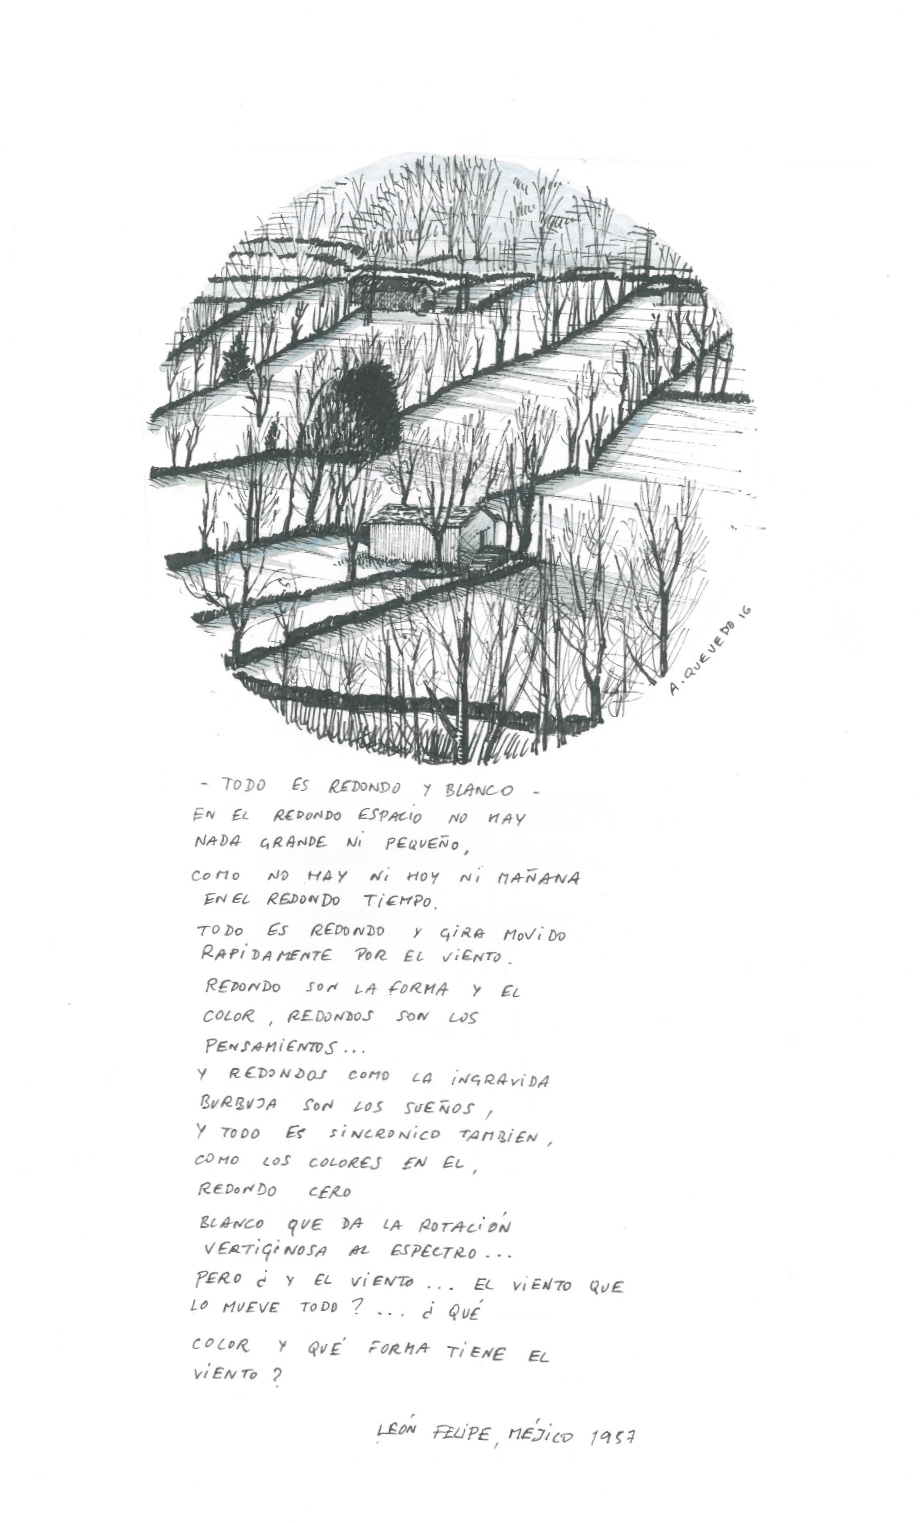 A. QUEVEDO 16
- TODO ES REDONDO Y BLANCO -
EN EL REDONDO ESPACIO NO HAY
NADA GRANDE NI PEQUEÑO,
COMO NO HAY NI HOY NI MAÑANA
EN EL REDONDO TIEMPO.
TODO ES REDONDO Y GIRA MOVIDO
RAPIDAMENTE POR EL VIENTO.
REDONDO SON LA FORMA Y EL
COLOR, REDONDOS SON LOS
PENSAMIENTOS...
Y REDONDOS COMO LA INGRAVIDA
BURBUJA SON LOS SUEÑOS,
Y TODO ES SINCRONICO TAMBIEN,
COMO LOS COLORES EN EL,
REDONDO CERO
BLANCO QUE DA LA ROTACIÓN
VERTIGINOSA AL ESPECTRO...
PERO ¿ Y EL VIENTO... EL VIENTO QUE
LO MUEVE TODO ?... ¿ QUÉ
COLOR Y QUÉ FORMA TIENE EL
VIENTO ?
LEÓN FELIPE, MÉJICO 1957